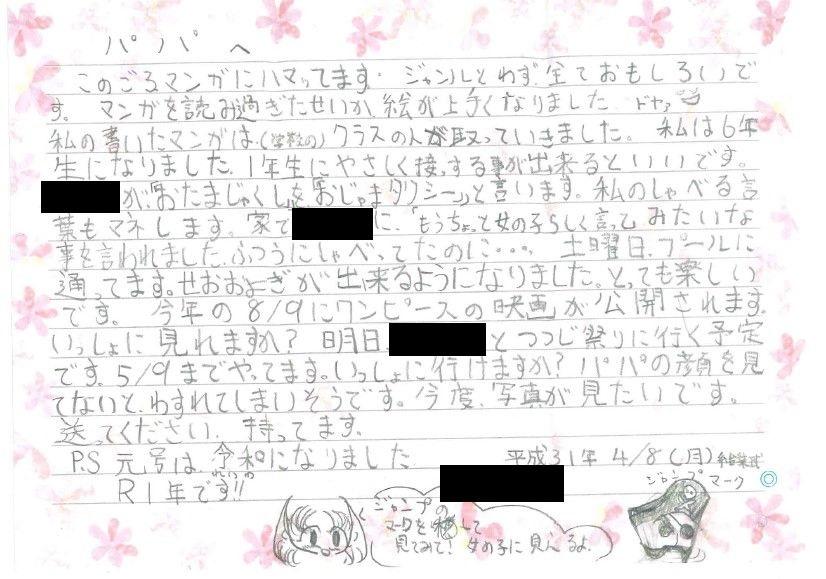 パパへ
このごろマンガにハマってます。ジャンルとわず、全ておもしろいで
す。マンガを読み過ぎたせいか、絵が上手くなりました。ドヤァ
私の書いたマンガは、(学校の)クラスの人が取っていきました。私は6年
生になりました。1年生にやさしく接する事が出来るといいです。
が、「おたまじゃくし」を、「おじゃまタクシー」と言います。私のしゃべる言
葉もマネします。家で に、「もうちょっと女の子らしく言って」みたいな
事を言われました。ふつうにしゃべってたのに・・・。土曜日、プールに
通ってます。せおよぎが出来るようになりました。とっても楽しい
です。今年の8/9にワンピースの映画が公開されます。
いっしょに見れますか？明日、 とつつじ祭りに行く予定
です。5/9までやってます。いっしょに行けますか？パパの顔を見
てないと、わすれてしまいそうです。今度、写真が見たいです。
送ってください。持ってます。
P.S 元号は、令和になりました 平成31年 4/8(月)始業式
れいわ
R1年です!! ジャンプマーク◎
ジャンプの
マークを して
見てみて！女の子に見えるよ。